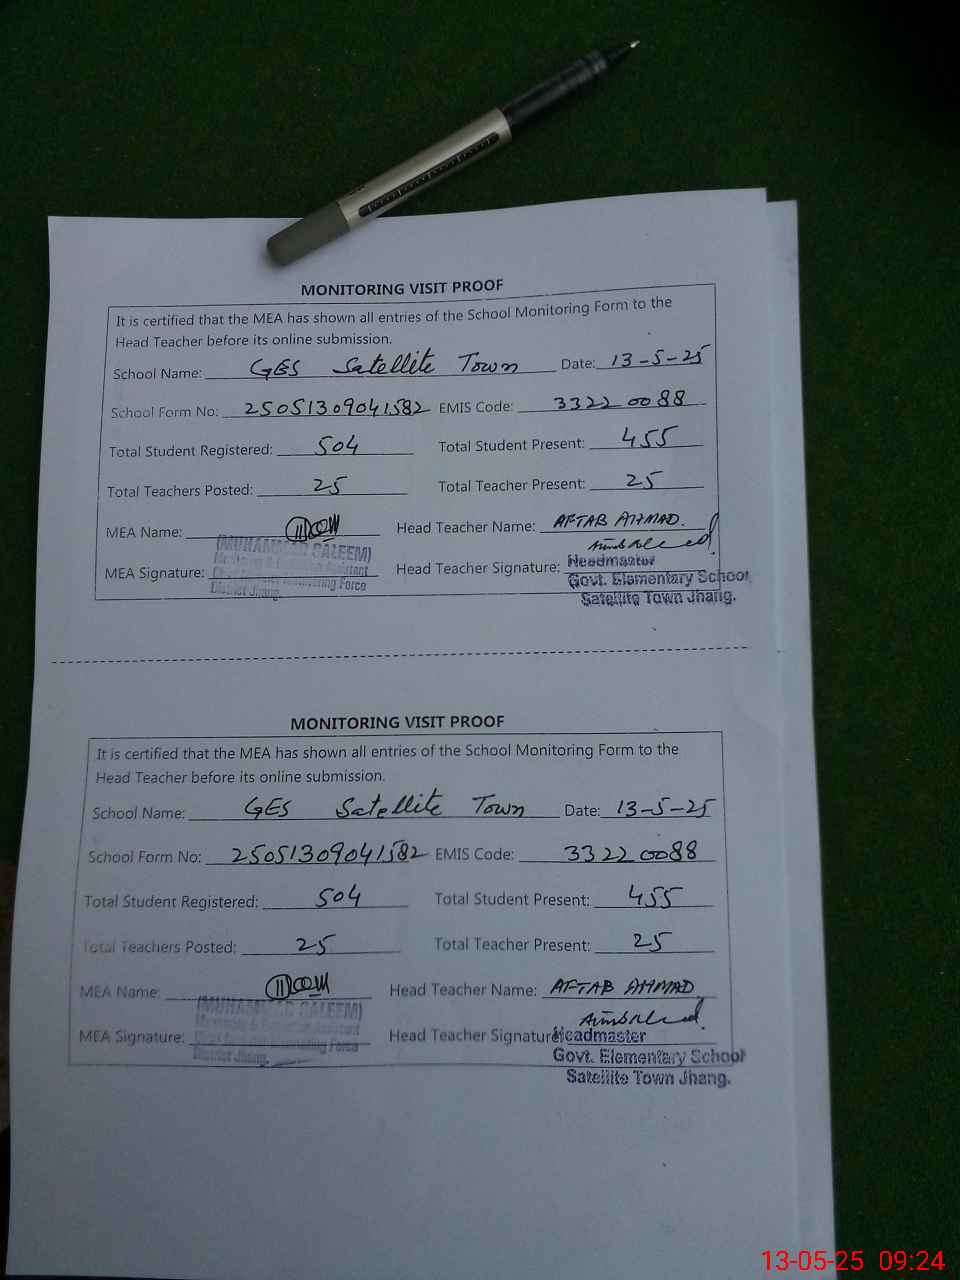 MONITORING VISIT PROOF
It is certified that the MEA has shown all entries of the School Monitoring Form to the
Head Teacher before its online submission.
School Name: GES Satellite Town Date: 13-5-25
School Form No: 25051309041582 EMIS Code: 33220088
Total Student Registered: 504 Total Student Present: 455
Total Teachers Posted: 25 Total Teacher Present: 25
MEA Name: Head Teacher Name: AFTAB AHMAD.
(MUHAMMAD SALEEM)
MEA Signature: Head Teacher Signature: Headmaster
Govt. Elementary School
District Jhang.
Satellite Town Jhang.
MONITORING VISIT PROOF
It is certified that the MEA has shown all entries of the School Monitoring Form to the
Head Teacher before its online submission.
School Name: GES Satellite Town Date: 13-5-25
School Form No: 25051309041582 EMIS Code: 33220088
Total Student Registered: 504 Total Student Present: 455
Total Teachers Posted: 25 Total Teacher Present: 25
MEA Name: Head Teacher Name: AFTAB AHMAD
(MUHAMMAD SALEEM)
MEA Signature: Head Teacher Signature Headmaster
District Jhang.
Govt. Elementary School
Satellite Town Jhang.
13-05-25 09:24